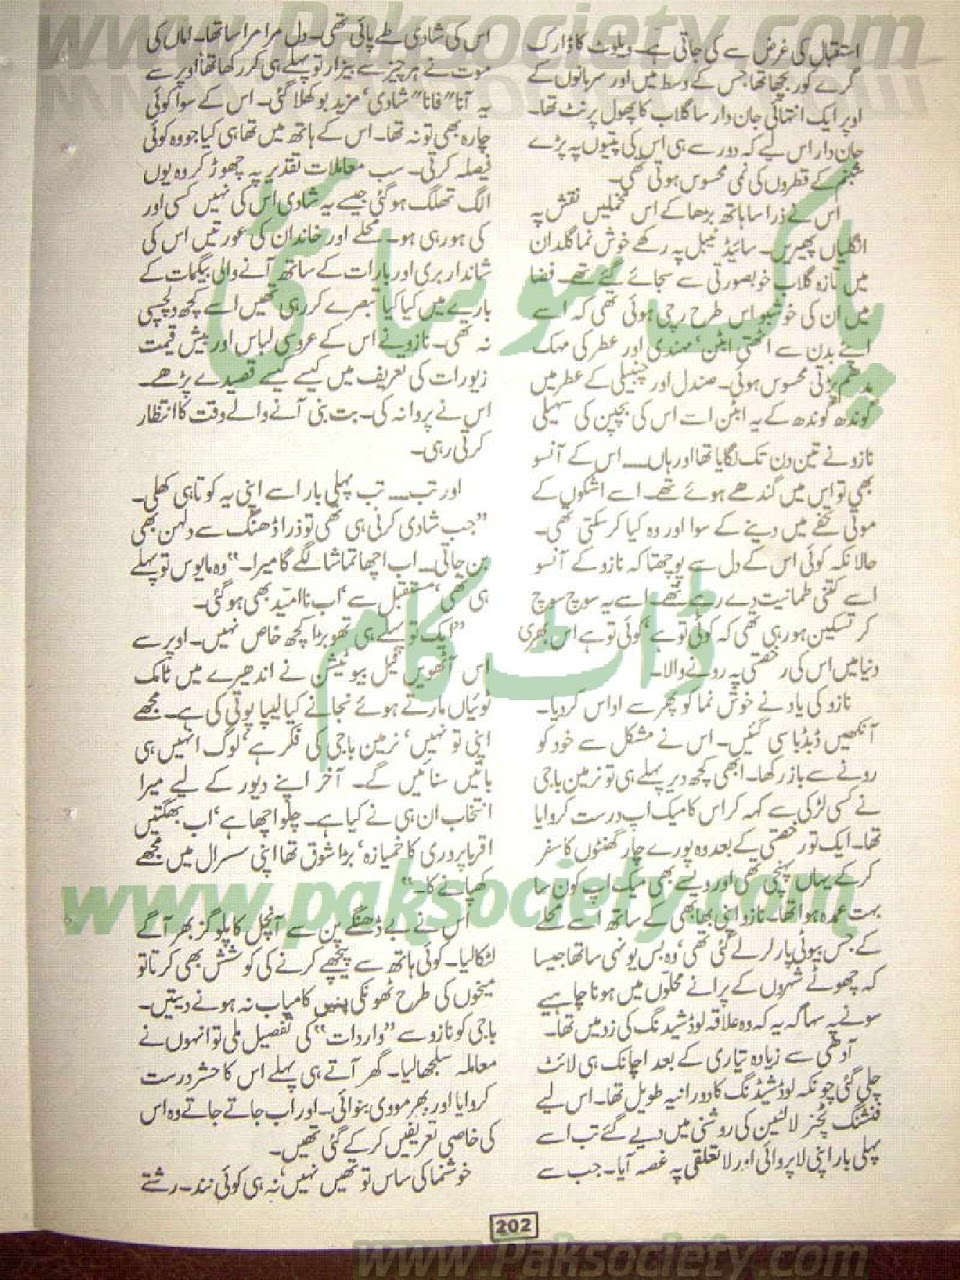 www.Paksociety.com
استقبال کی غرض سے کی جاتی ہے۔ ویلوٹ کا ڈارک
گرے کور بچھا تھا، جس کے وسط میں اور سرہانوں کے
اوپر ایک انتہائی جان دار سا گلاب کا پھول پرنٹ تھا۔
جان دار اس لیے کہ دور سے ہی اس کی پتیوں پہ پڑے
شبنم کے قطروں کی نمی محسوس ہوتی تھی۔
اس نے ذرا سا ہاتھ بڑھا کے اس مخملیں نقش پہ
انگلیاں پھیریں۔ سائیڈ ٹیبل پہ رکھے خوش نما گلدان
میں تازہ گلاب خوبصورتی سے سجائے گئے تھے۔ فضا
میں ان کی خوشبو اس طرح رچی ہوئی تھی کہ اسے
اپنے بدن سے اٹھتی ابٹن، مہندی اور عطر کی مہک
مدھم پڑتی محسوس ہوئی۔ صندل اور چنبیلی کے عطر میں
گوندھ گوندھ کے یہ ابٹن اسے اس کی بچپن کی سہیلی
نازو نے تین دن تک لگایا تھا اور ہاں۔۔۔۔ اس کے آنسو
بھی تو اس میں گندھے ہوئے تھے۔ اسے اشکوں کے
موتی تحفے میں دینے کے سوا اور وہ کیا کر سکتی تھی۔
حالانکہ کوئی اس کے دل سے پوچھتا کہ نازو کے آنسو
اسے کتنی طمانیت دے رہے تھے۔ اسے یہ سوچ سوچ
کر تسکین ہو رہی تھی کہ کوئی تو ہے، کوئی تو ہے اس بھری
دنیا میں اس کی رخصتی پہ رونے والا۔
نازو کی یاد نے خوش نما کو پھر سے اداس کر دیا۔
آنکھیں ڈبڈبا سی گئیں۔ اس نے مشکل سے خود کو
رونے سے باز رکھا۔ ابھی کچھ دیر پہلے ہی تو نرمین باجی
نے کسی لڑکی سے کہہ کر اس کا میک اپ درست کروایا
تھا۔ ایک تو رخصتی کے بعد وہ پورے چار گھنٹوں کا سفر
کر کے یہاں پہنچی تھی اور ویسے بھی میک اپ کون سا
بہت عمدہ ہوا تھا۔ نازو اپنی بھابھی کے ساتھ اسے محلے
کے جس بیوٹی پارلر لے گئی تھی، وہ بس یونہی سا تھا جیسا
کہ چھوٹے شہروں کے پرانے محلوں میں ہونا چاہیے
سونے پہ سہاگہ یہ کہ وہ علاقہ لوڈ شیڈنگ کی زد میں تھا۔
آدھی سے زیادہ تیاری کے بعد اچانک ہی لائٹ
چلی گئی چونکہ لوڈ شیڈنگ کا دورانیہ طویل تھا۔ اس لیے
فنشنگ ٹچز لالٹین کی روشنی میں دیے گئے تب اسے
پہلی بار اپنی لا پروائی اور لا تعلقی پہ غصہ آیا۔ جب سے
اس کی شادی طے پائی تھی۔ دل مرا مرا سا تھا۔ اماں کی
موت نے ہر چیز سے بیزار تو پہلے ہی کر رکھا تھا اوپر سے
یہ آنا" فانا" شادی، مزید بوکھلا گئی۔ اس کے سوا کوئی
چارہ بھی تو نہ تھا۔ اس کے ہاتھ میں تھا ہی کیا جو وہ کوئی
فیصلہ کرتی۔ سب معاملات تقدیر پہ چھوڑ کر وہ یوں
الگ تھلگ ہو گئی جیسے یہ شادی اس کی نہیں کسی اور
کی ہو رہی ہو۔ محلے اور خاندان کی عورتیں اس کی
شاندار بری اور بارات کے ساتھ آنے والی بیگمات کے
بارے میں کیا کیا تبصرے کر رہی تھیں اسے کچھ دلچسپی
نہ تھی۔ نازو نے اس کے عروسی لباس اور بیش قیمت
زیورات کی تعریف میں کیسے کیسے قصیدے پڑھے۔
اس نے پروا نہ کی۔ بت بنی آنے والے وقت کا انتظار
کرتی رہی۔
اور تب۔۔۔۔ تب پہلی بار اسے اپنی یہ کوتاہی کھلی۔
"جب شادی کرنی ہی تھی تو ذرا ڈھنگ سے دلہن بھی
بن جاتی۔۔ اب اچھا تماشا لگے گا میرا۔" وہ مایوس تو پہلے
ہی تھی، مستقبل سے، اب نا امید بھی ہو گئی۔
"ایک تو پہلے ہی تھوبڑا کچھ خاص نہیں۔ اوپر سے
اس آٹھویں فیل بیوٹیشن نے اندھیرے میں ٹامک
ٹوئیاں مارتے ہوئے نجانے کیا لیپا پوتی کی ہے۔ مجھے
اپنی تو نہیں، نرمین باجی کی فکر ہے، لوگ انہیں ہی
باتیں سنائیں گے۔ آخر اپنے دیور کے لیے میرا
انتخاب ان ہی نے کیا ہے۔ چلو اچھا ہے، اب بھگتیں
اقربا پروری کا خمیازہ، بڑا شوق تھا اپنی سسرال میں مجھے
کھپانے کا۔"
اس نے بے ڈھنگے پن سے آنچل کا پلو گز بھر آگے
لٹکا لیا۔ کوئی ہاتھ سے پیچھے کرنے کی کوشش بھی کرتا تو
میخوں کی طرح ٹھونکی پنیں کامیاب نہ ہونے دیتیں۔
باجی کو نازو سے "واردات" کی تفصیل ملی تو انہوں نے
معاملہ سلجھا لیا۔ گھر آتے ہی پہلے اس کا حشر درست
کروایا اور پھر مووی بنوائی۔ اور اب جاتے جاتے وہ اس
کی خاصی تعریفیں کر کے گئی تھیں۔
خوشنما کی ساس تو تھیں نہیں، نہ ہی کوئی نند۔ رشتے
پاک سوسائٹی
ڈاٹ کام
www.paksociety.com
202
www.Paksociety.com